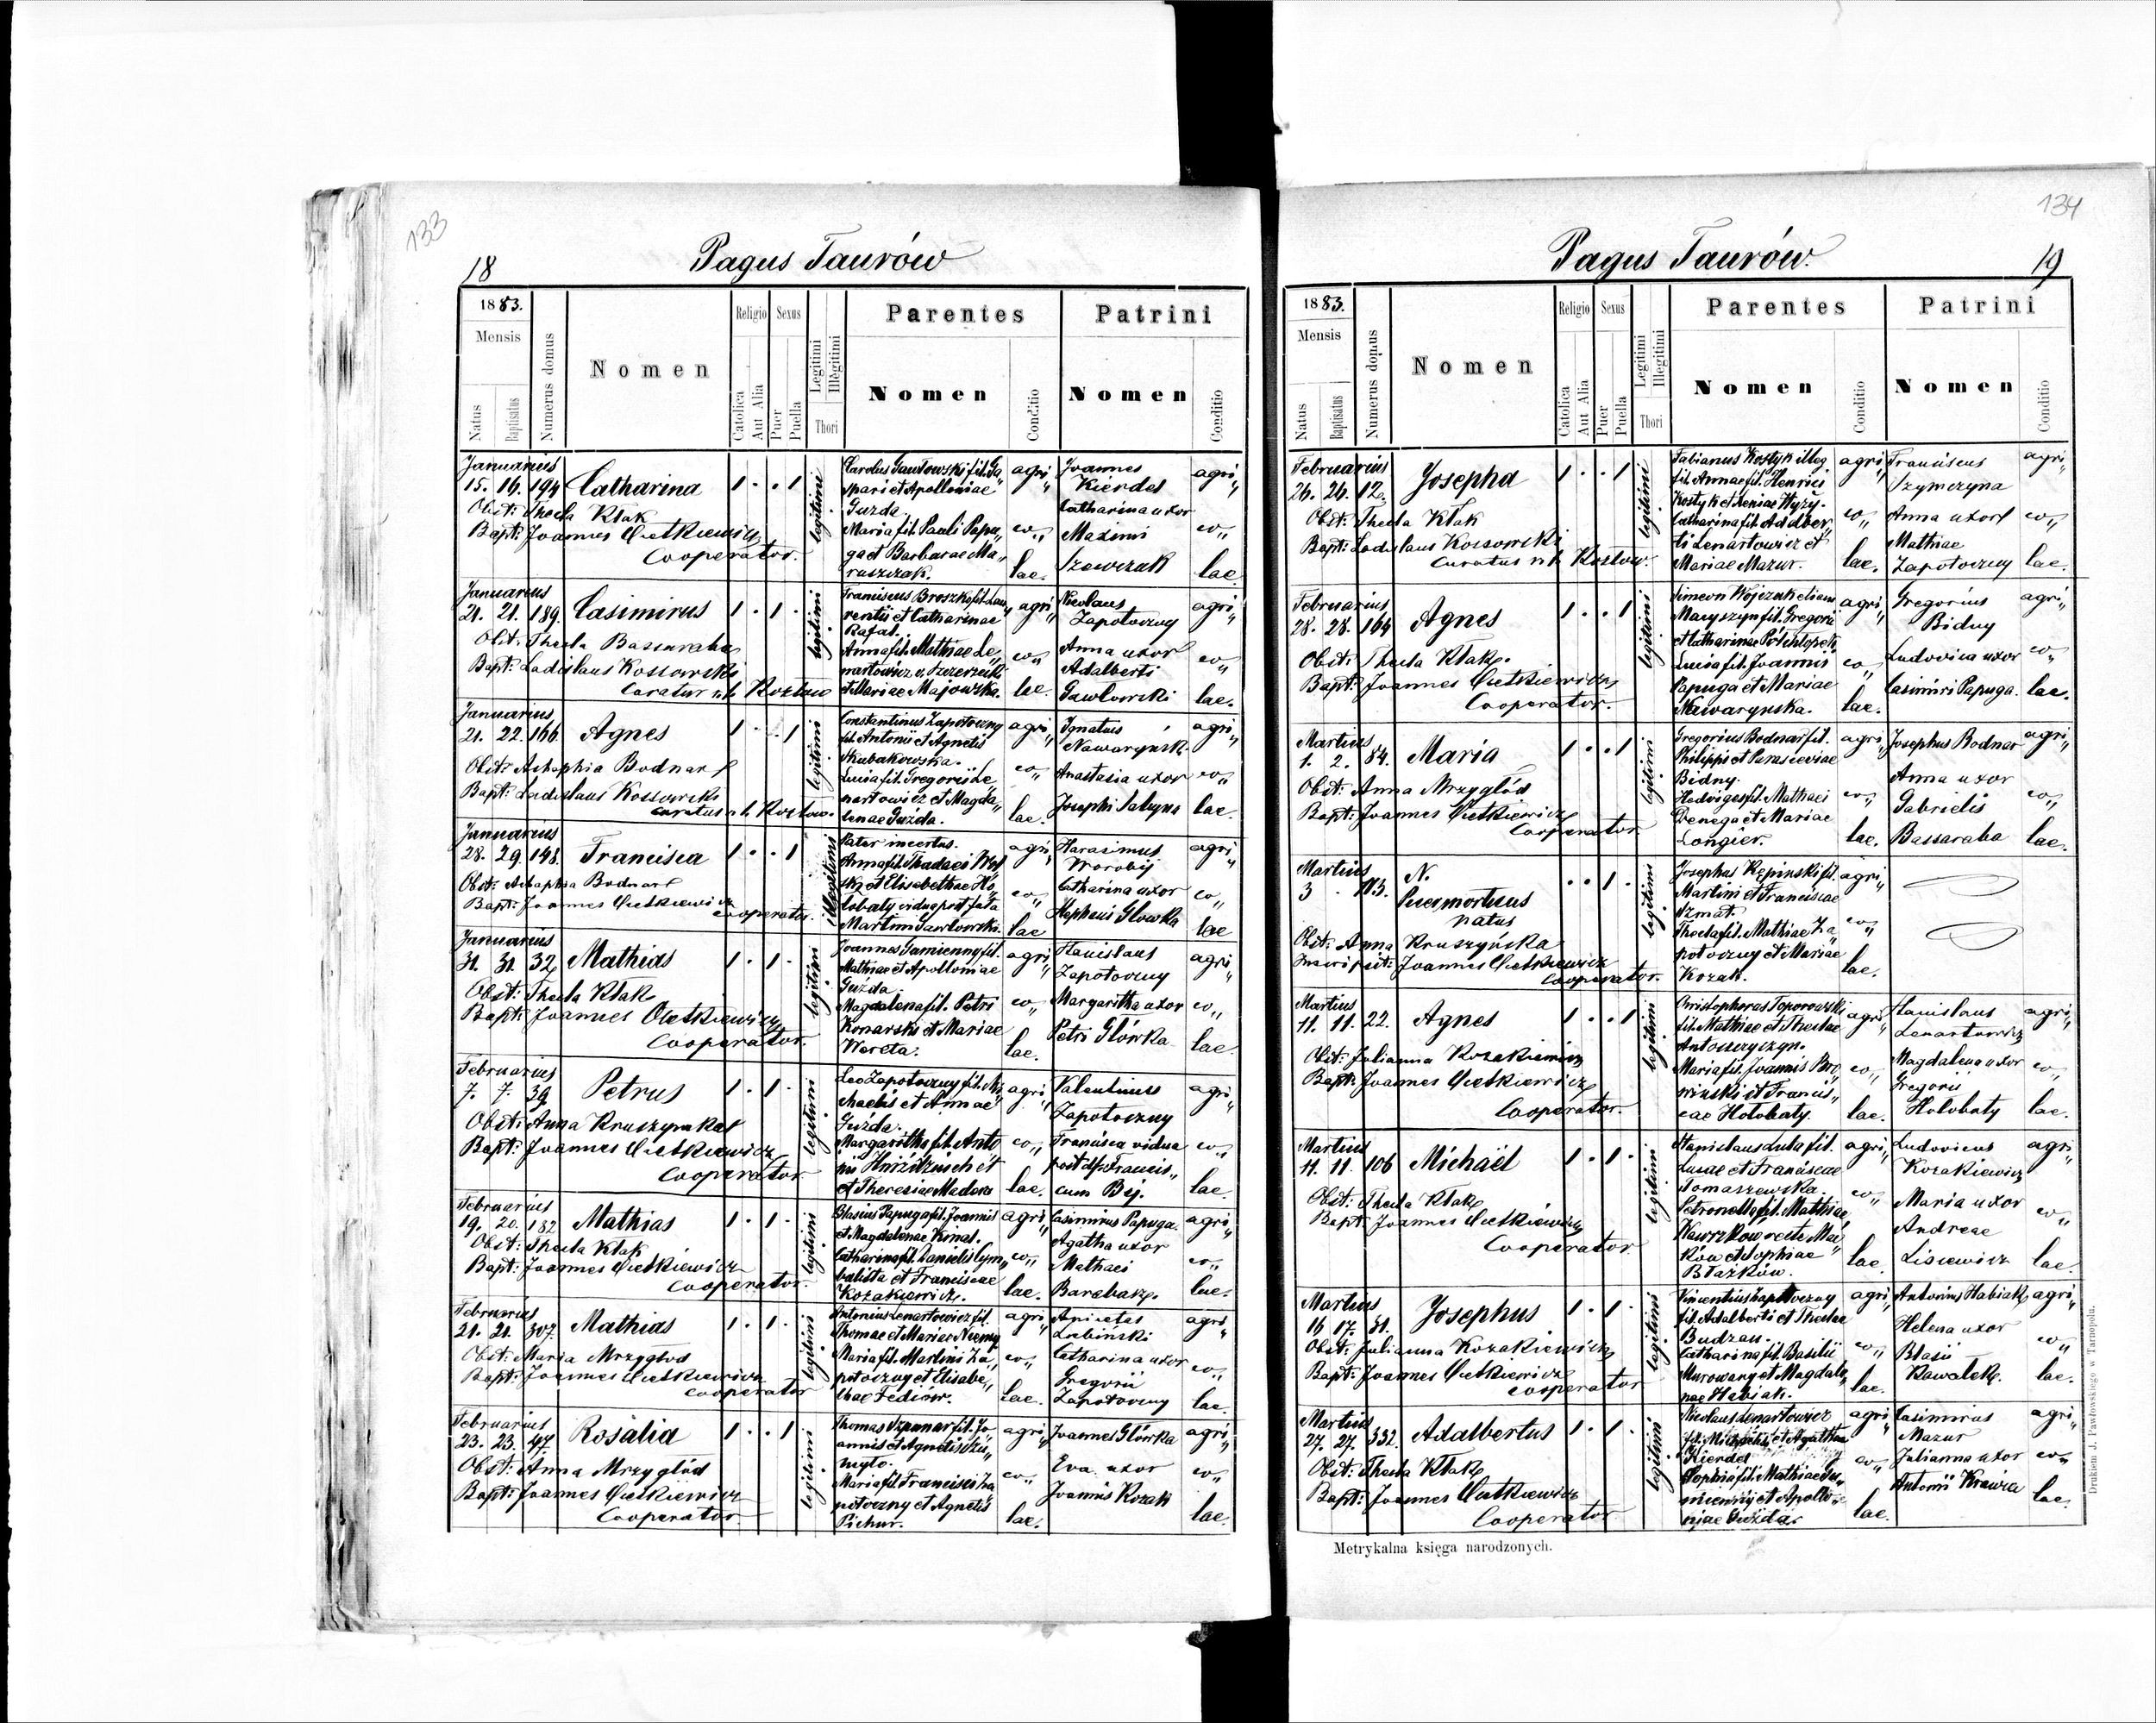 133
18
Pagus Taurów
1883.
Mensis
Natus
Baptisatus
Numerus domus
Nomen
Religio
Catolica
Aut Alia
Sexus
Puer
Puella
Legitimi
Illegitimi
Thori
Parentes
Nomen
Conditio
Patrini
Nomen
Conditio
Januarius
15. 16. 194 Catharina 1 . . 1
Obst: Thecla Kłak
Bapt: Joannes Cietkiewicz
Cooperator.
legitimi
Carolus Gawłowski fil. Ga„
spari et Apolloniae
Guzda.
Maria fil. Pauli Papu„
ga et Barbarae Ma„
ruszczak.
agri„
co„
lae.
Joannes
Kierdel
Catharina uxor
Maximi
Szewczak
agri„
co„
lae.
Januarius
21. 21. 189. Casimirus 1 . 1 .
Obst: Thecla Bassaraba
Bapt: Ladislaus Kossowski
Curatus n.l. Kozłow
legitimi
Franciscus Broszko fil. Lau„
rentii et Catharinae
Rafal.
Anna fil. Mathiae Le„
nartowicz v. Szczerzecki
et Mariae Majowska.
agri„
co„
lae.
Nicolaus
Zapotoczny
Anna uxor
Adalberti
Gawłowski
agri„
co„
lae.
Januarius
21. 22. 166. Agnes 1 . . 1
Obst: Bodnar
Bapt: Ladislaus Kossowski
curatus n.l. Kozłow.
legitimi
Constantinus Zapotoczny
fil. Antonii et Agnetis
Skubakowska.
Lucia fil. Gregorii Le„
nartowicz et Magda„
lenae Guzda.
agri„
co„
lae.
Ignatius
Nawaryńsk
Anastasia uxor
Josephi
agri„
co„
lae.
Januarius
28. 29. 148. Francisca 1 . . 1
Obst: Bodnar
Bapt: Joannes Cietkiewicz
cooperator.
illegitimi
Pater incertus.
Anna fil. Thadaei
et Elisabethae Ho„
łobaty vidua post fata
Martini Gawłowski.
agri„
co„
lae
Harasimus
Worobij
Catharina uxor
Stephani Glowka
agri„
co„
lae
Januarius
31. 31. 32. Mathias 1 . 1 .
Obst: Thecla Kłak
Bapt: Joannes Cietkiewicz
Cooperator.
legitimi
Joannes Gamienny fil.
Mathiae et Apolloniae
Guzda.
Magdalena fil. Petri
Konarski et Mariae
Wereta.
agri„
co„
lae.
Stanislaus
Zapotoczny
Margaritha uxor
Petri Glówka
agri„
co„
lae.
Februarius
7. 7. 39. Petrus 1 . 1 .
Obst: Anna Kruszynska
Bapt: Joannes Cietkiewicz
Cooperator.
legitimi
Leo Zapotoczny fil. Mi„
chaelis et Annae
Guzda.
Margaritha fil. Anto
nii et
et Theresiae Madera
agri„
co„
lae.
Valentinus
Zapotoczny
Francisca vidua
post df. Francis„
cum Bij.
agri„
co„
lae.
Februarius
19. 20. 182 Mathias 1 . 1 .
Obst: Thecla Kłak
Bapt: Joannes Cietkiewicz
Cooperator.
legitimi
Blasius Papuga fil. Joannis
et Magdalenae Kinal.
Catharina fil. Danielis Cym„
balista et Franciscae
Kozakiewicz.
agri„
co„
lae.
Casimirus Papuga.
Agatha uxor
Mathaei
Barabasz.
agri„
co„
lae.
Februarius
21. 21. 307. Mathias 1 . 1 .
Obst: Maria Mrzygłod
Bapt: Joannes Cietkiewicz
cooperator
legitimi
Antonius Lenartowicz fil.
Thomae et Mariae Niemy
Maria fil. Martini Za„
potoczny et Elisabe„
thae Fediów.
agri„
co„
lae.
Anicetus
Lubinski
Catharina uxor
Gregorii
Zapotoczny
agri„
co„
lae.
Februarius
23. 23. 47. Rosalia 1 . . 1
Obst: Anna Mrzyglód
Bapt: Joannes Cietkiewicz
Cooperator
legitimi
Thomas Szpunar fil. Jo„
annis et Agnetis Szu„
myło.
Maria fil. Francisci Za
potoczny et Agnetis
Pichur.
agri„
co„
lae.
Joannes Glówka
Eva uxor
Joannis Kozak
agri„
co„
lae.
134
19
Pagus Taurów.
1883.
Mensis
Natus
Baptisatus
Numerus domus
Nomen
Religio
Catolica
Aut Alia
Sexus
Puer
Puella
Legitimi
Illegitimi
Thori
Parentes
Nomen
Conditio
Patrini
Nomen
Conditio
Februarius
26. 26. 12. Josepha 1 . . 1
Obst: Thecla Kłak
Bapt: Ladislaus Kossowski
Curatus n.l. Kozłow.
legitimi
Fabianus Kostyk illeg.
fil. Annae fil. Henrici
Kostyk et Xeniae
Catharina fil. Adalber„
ti Lenartowicz et
Mariae Mazur.
agri„
co„
lae.
Franciscus
Szymczyna
Anna uxor
Mathiae
Zapotoczny
agri„
co„
lae.
Februarius
28. 28. 164 Agnes 1 . . 1
Obst: Thecla Kłak.
Bapt: Joannes Cietkiewicz
Cooperator.
legitimi
Simeon Wojczuk alias
Maryszyn fil. Gregorii
et Catharinae Półchłopek
Lucia fil. Joannis
Papuga et Mariae
Nawarynska.
agri„
co„
lae.
Gregorius
Bidny
Ludovica uxor
Casimiri Papuga.
agri„
co„
lae.
Martius
1. 2. 84. Maria 1 . . 1
Obst: Anna Mrzyglód
Bapt: Joannes Cietkiewicz
Cooperator
legitimi
Gregorius Bodnar fil.
Philippi et Parasceviae
Bidny.
Hedviges fil. Mathaei
Denega et Mariae
Longier.
agri„
co„
lae.
Josephus Bodnar
Anna uxor
Gabrielis
Bassaraba
agri„
co„
lae.
Martius
3 . 113. N. . . 1 .
Puer mortuus
natus
Obst: Anna Kruszyńska
Inscripsit: Joannes Cietkiewicz
Cooperator.
legitimi
Josephus Kępinski fil.
Martini et Franciscae
Szmat.
Thecla fil. Mathiae Za„
potoczny et Mariae
Kozak.
agri„
co„
lae.
Martius
11. 11. 22. Agnes 1 . . 1
Obst: Julianna Kozakiewicz
Bapt: Joannes Cietkiewicz
Cooperator.
legitimi
Christophorus Toporowski
fil. Mathiae et Theclae
Antoszczyszyn.
Maria fil. Joannis Bro„
winski et Francis„
cae Hołobaty.
agri„
co„
lae.
Stanislaus
Lenartowicz
Magdalena uxor
Gregorii
Hołobaty
agri„
co„
lae.
Martius
11. 11. 106 Michaël 1 . 1 .
Obst: Thecla Kłak
Bapt: Joannes Cietkiewicz
Cooperator
legitimi
Stanislaus Luta fil.
Lucae et Franciscae
Tomaszewska.
Petronella fil. Mathiae
Kawrzków recte Maj„
ków et Sophiae
Błazków.
agri„
co„
lae.
Ludovicus
Kozakiewicz
Maria uxor
Andreae
Lisiewicz
agri„
co„
lae.
Martius
16 17. 31. Josephus 1 . 1 .
Obst: Julianna Kozakiewicz
Bapt: Joannes Cietkiewicz
cooperator
legitimi
Vincentius Zapotoczny
fil. Adalberti et Theclae
Budzan.
Catharina fil. Basilii
Murowany et Magdale„
nae Habiak.
agri„
co„
lae.
Antonius Habiak
Helena uxor
Blasii
Kawalek.
agri„
co„
lae.
Martius
27. 27. 332. Adalbertus 1 . 1 .
Obst: Thecla Kłak
Bapt: Joannes Cietkiewicz
Cooperator
legitimi
Nicolaus Lenartowicz
fil. Michaelis et Agathae
Kierdel
Sophia fil. Mathiae Ga„
mienny et Apollo„
niae Guzda.
agri„
co„
lae.
Casimirus
Mazur
Julianna uxor
Antonii Krawica
agri„
co„
lae.
Metrykalna księga narodzonych.
Drukiem J. Pawłowskiego w Tarnopolu.